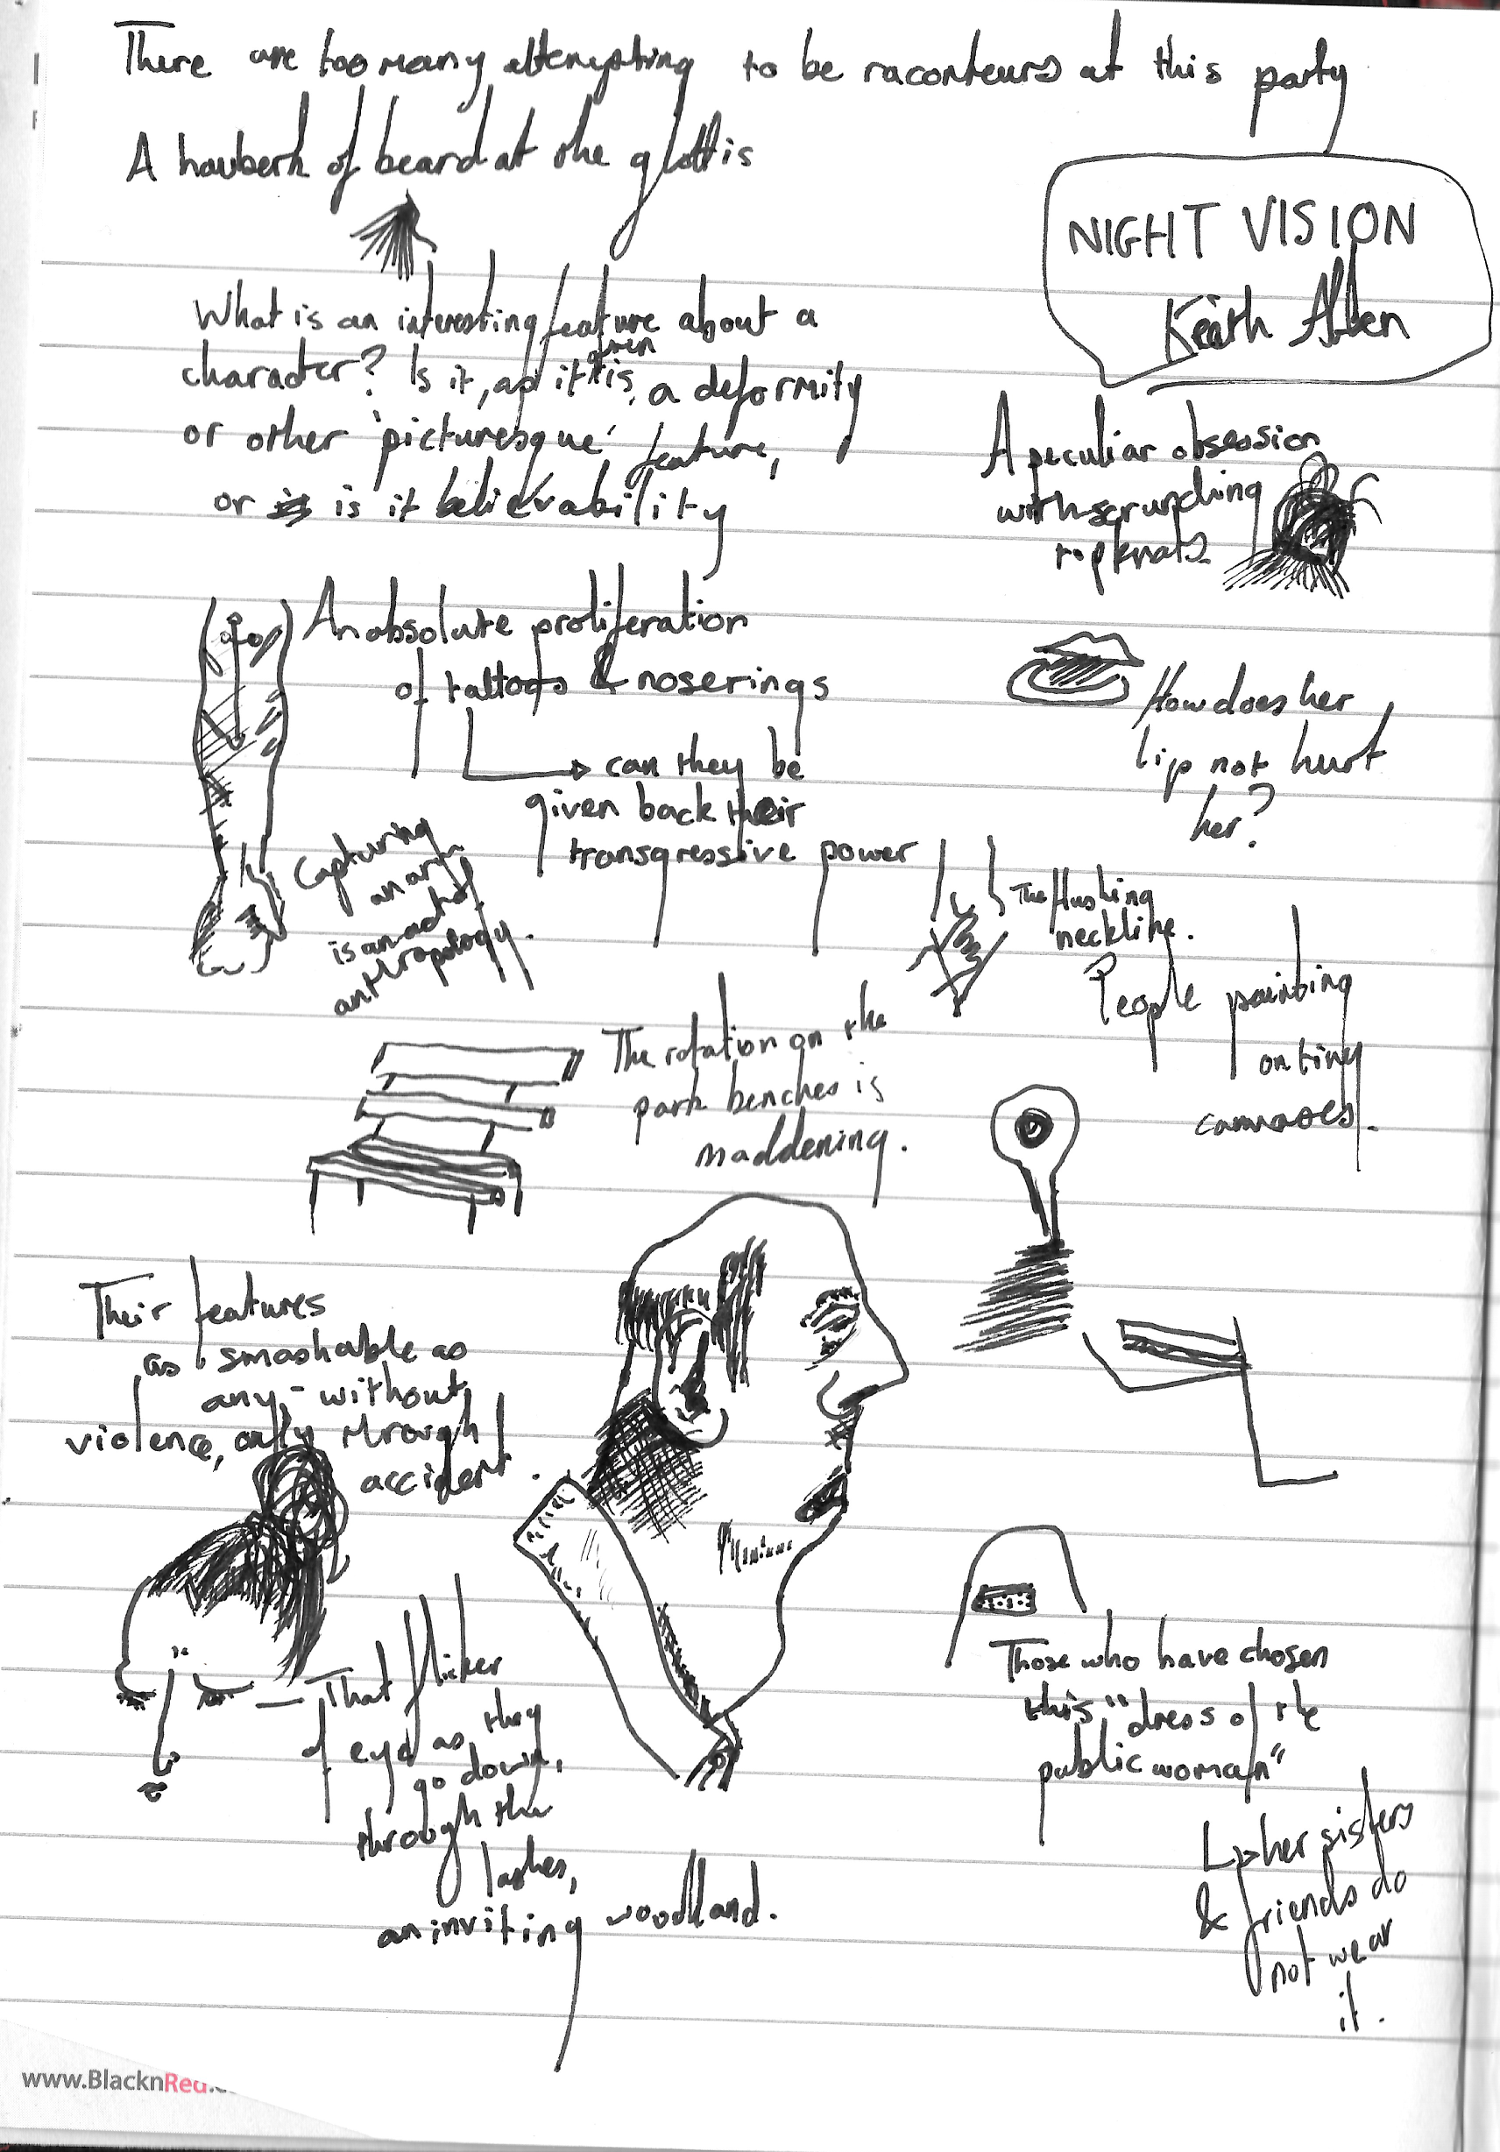 There are too many attempting to be raconteurs at this party
A hauberk of beard at the glottis
NIGHT VISION
Keith Allen
What is an interesting feature about a
character? Is it, as it often is, a deformity
or other 'picturesque' feature,
or is it believability
A peculiar obsession
with scrunching
topknots
An absolute proliferation
of tattoos & noserings
can they be
given back their
transgressive power
How does her
lip not hurt
her?
Capturing
an arm
is an act of
anthropology.
The flushing
neckline.
People painting
on tiny
canvases.
The rotation on the
park benches is
maddening.
Their features
as smashable as
any - without
violence, only through
accident.
That flicker
of eye as they
go down,
through the
lashes,
an inviting woodland.
Those who have chosen
this "dress of the
public woman"
her sisters
& friends do
not wear
it.
www.BlacknRed.